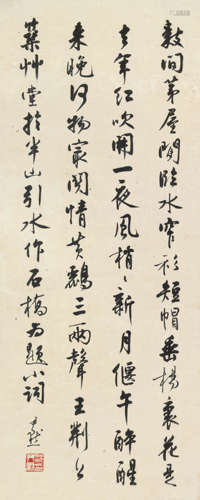 數間茅屋閒臨水窄衫短帽垂楊裏花是
去年紅吹開一夜風梢〻新月偃午醉醒
來晚何物最關情黃鸝三兩聲王荊公
築艸堂於半山引水作石橋為題小詞 尹默